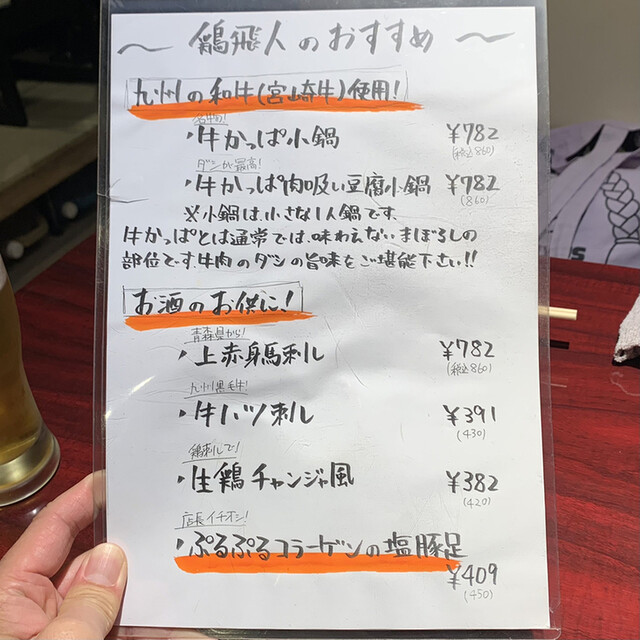 〜 鶏飛人のおすすめ 〜
九州の和牛(宮崎牛)使用!
名物!
・牛かっぱ小鍋 ¥782
(税込860)
ダシが最高!
・牛かっぱ肉吸い豆腐小鍋 ¥782
(860)
※小鍋は小さな1人鍋です.
牛かっぱとは通常では、味わえないまぼろしの
部位です.牛肉のダシの旨味をご堪能下さい!!
お酒のお供に!
青森県から!
・上赤身馬刺し ¥782
(税込860)
九州黒毛牛!
・牛ハツ刺し ¥391
(430)
鶏刺しで!
・生鶏チャンジャ風 ¥382
(420)
店長イチオシ!
・ぷるぷるコラーゲンの塩豚足
¥409
(450)